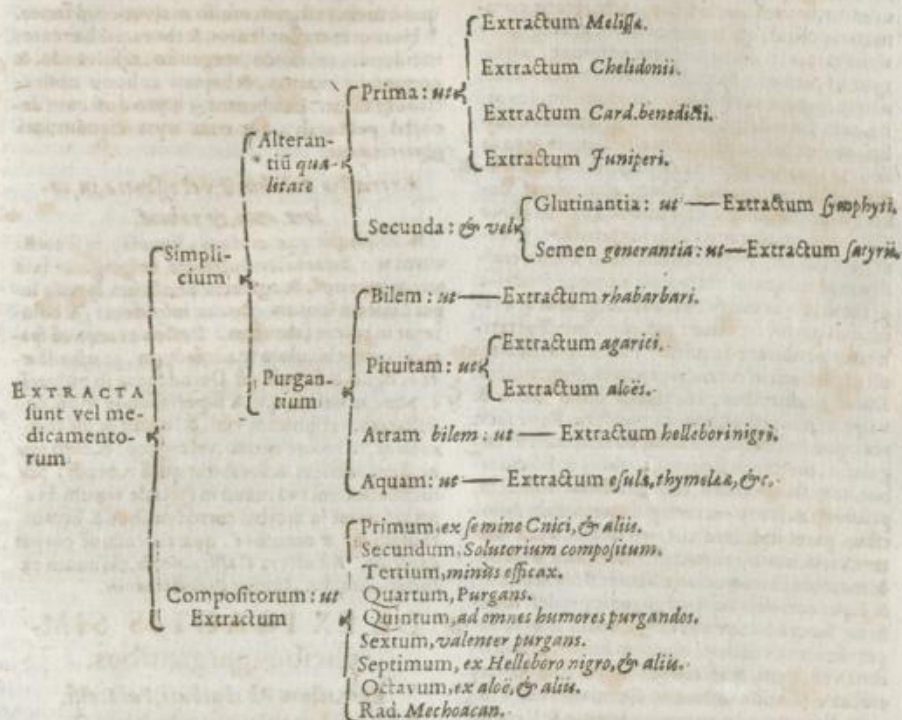 EXTRACTA
sunt vel me-
dicamento-
rum
Simpli-
cium
Alteran-
tiũ qua
litate
Prima: ut
Extractum Melissæ.
Extractum Chelidonii.
Extractum Card. benedicti.
Extractum Juniperi.
Secunda: & vel
Glutinantia: ut — Extractum symphyti.
Semen generantia: ut — Extractum satyrii.
Purgan-
tium
Bilem: ut — Extractum rhabarbari.
Pituitam: ut
Extractum agarici.
Extractum aloës.
Atram bilem: ut — Extractum hellebori nigri.
Aquam: ut — Extractum esulæ, thymelææ, &c.
Compositorum: ut
Extractum
Primum, ex semine Cnici, & aliis.
Secundum, Solutorium compositum.
Tertium, minùs efficax.
Quartum, Purgans.
Quintum, ad omnes humores purgandos.
Sextum, valenter purgans.
Septimum, ex Helleboro nigro, & aliis.
Octavum, ex aloë, & aliis.
Rad. Mechoacan.